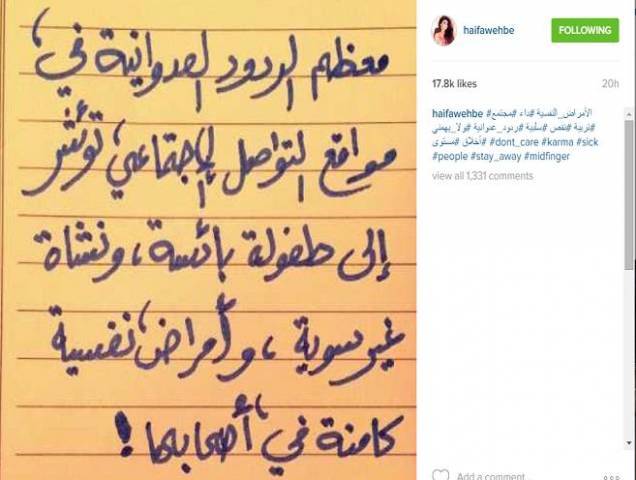 معظم الردود العدوانية في
مواقع التواصل الإجتماعي، تؤشر
إلى طفولة بائسة، ونشاة
غير سوية، وأمراض نفسية
كامنة في أصحابها!
haifawehbe
FOLLOWING
17.8k likes
20h
haifawehbe #الأمراض_النفسية #داء #مجتمع
#تربية #نقص #سلبية #ردود_عدوانية #ولا_يهمني
#أخلاق #مستوى #dont_care #karma #sick
#people #stay_away #midfinger
view all 1,331 comments
Add a comment...